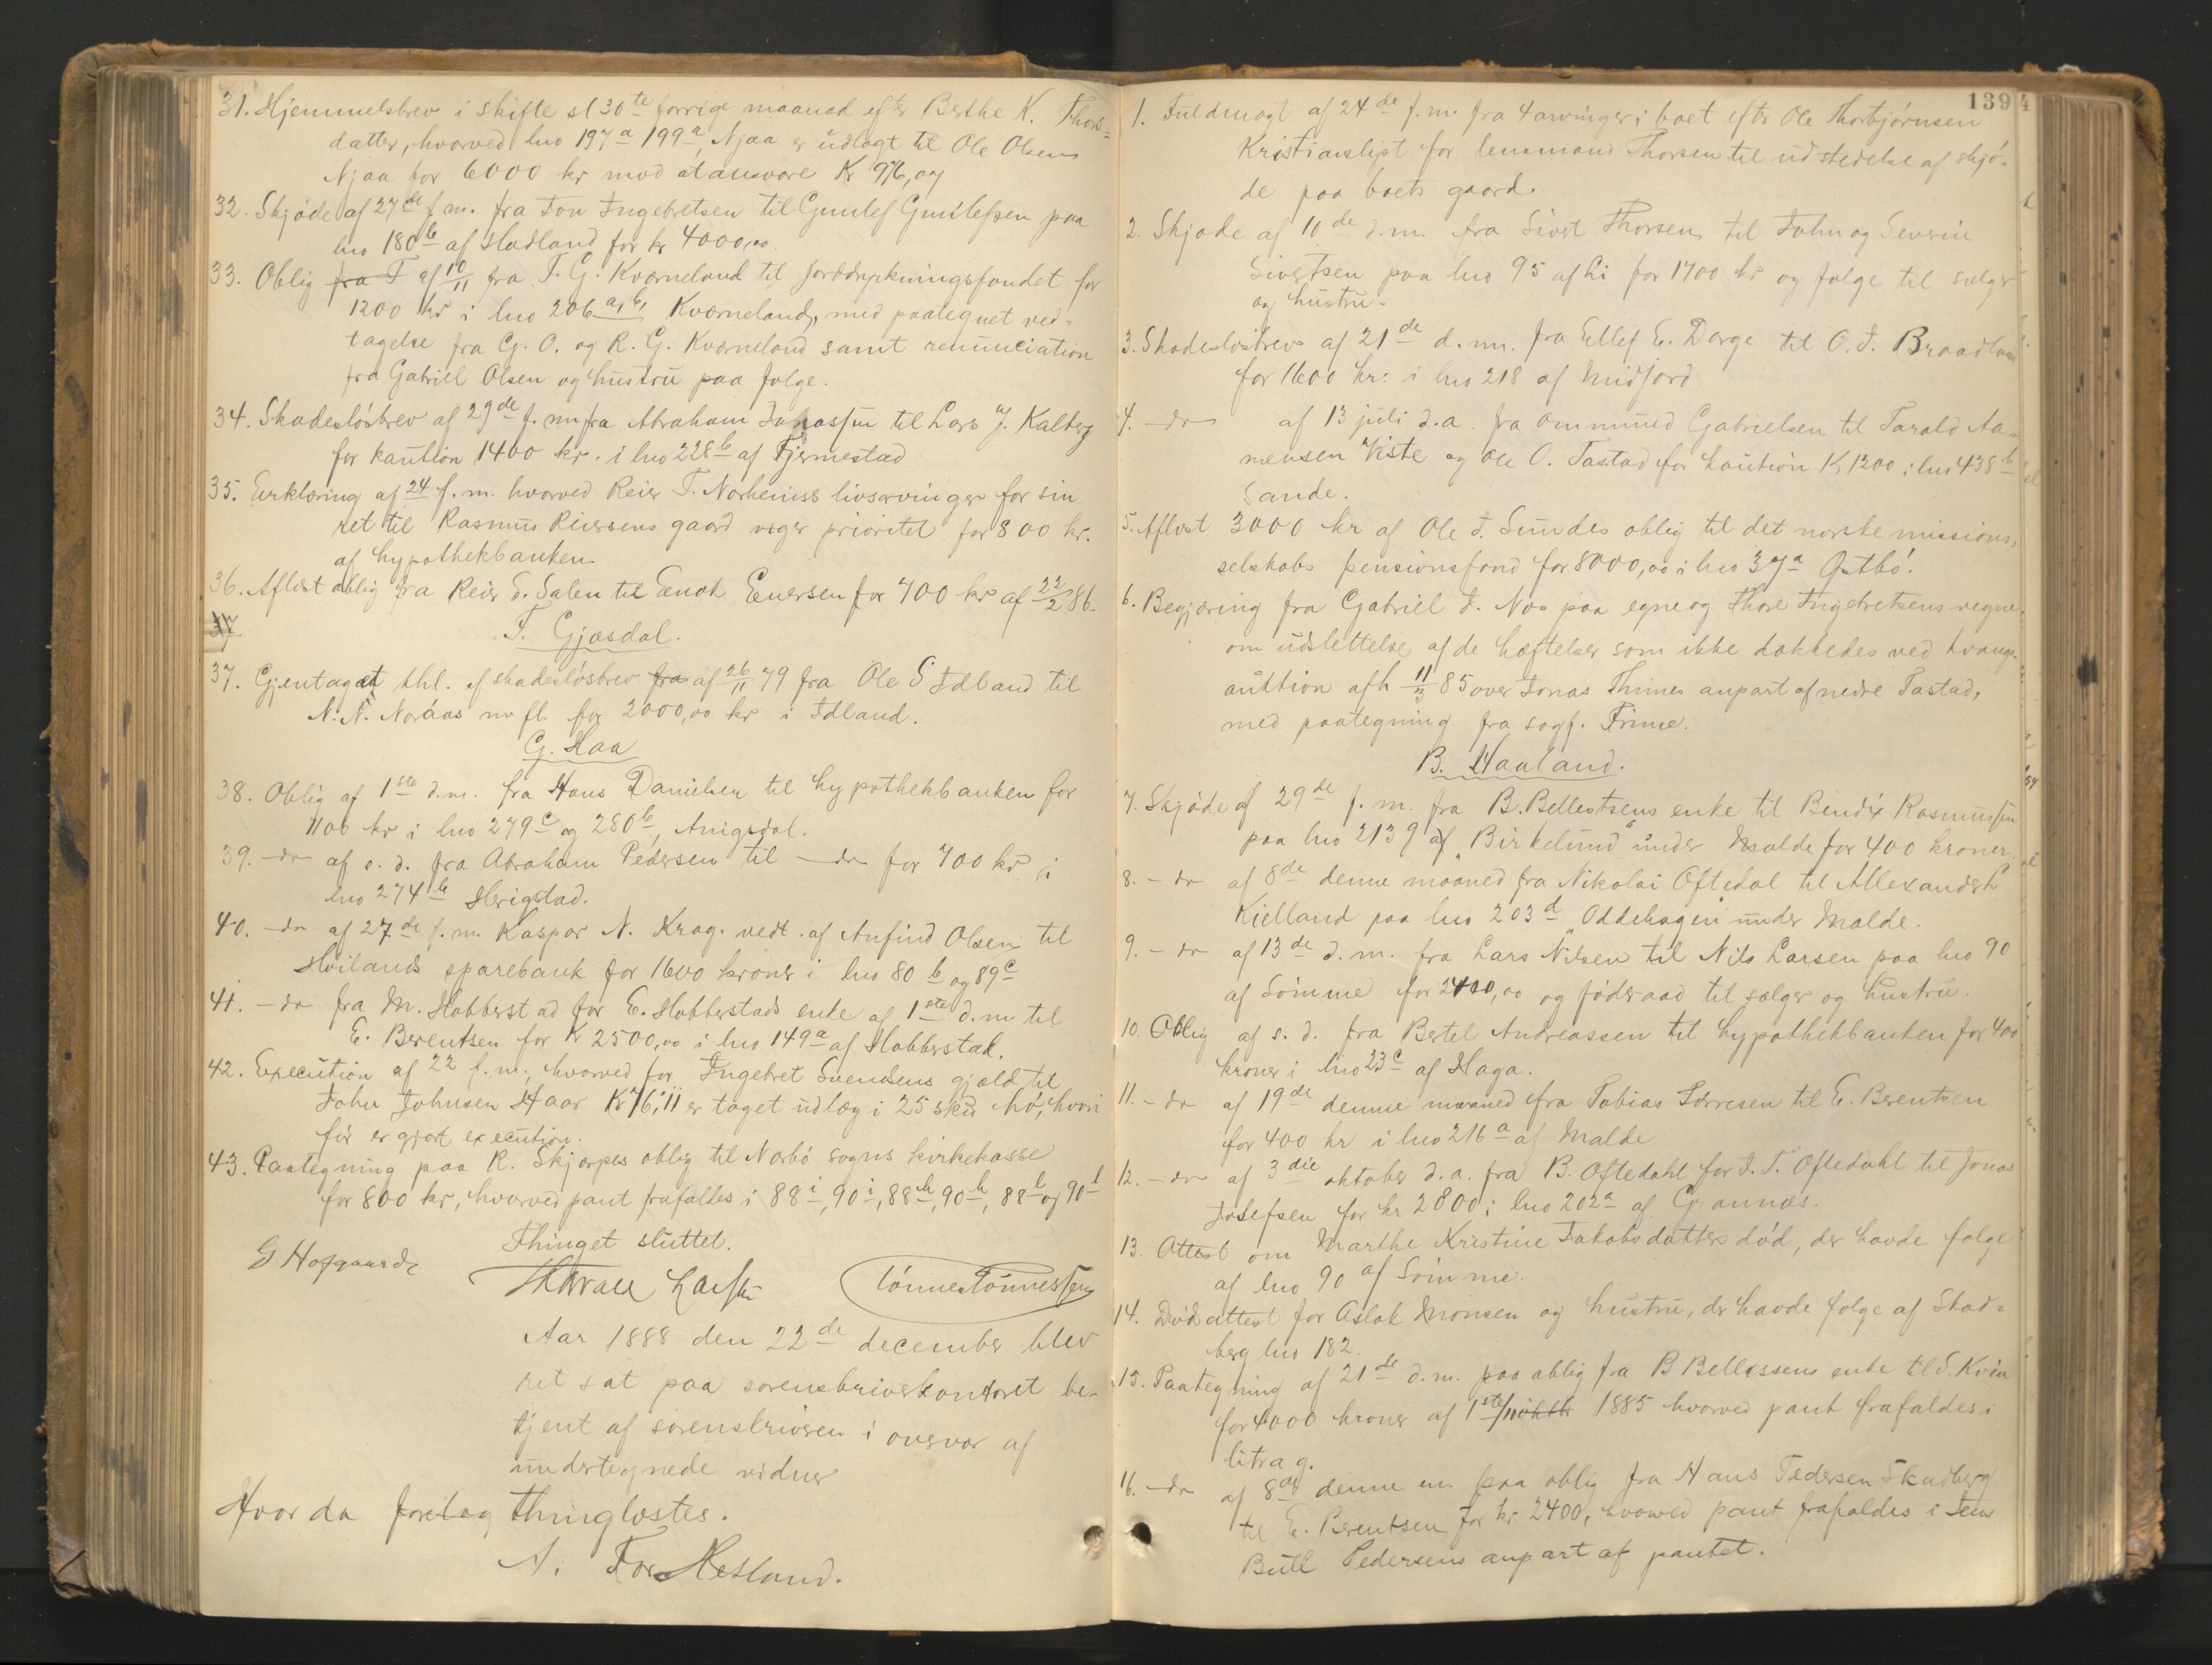 31. Hjemmelsbrev i skifte sl 30te forrige maaned efter Berthe K. Thors=
datter, hvorved lno 197a 199a, Njaa er udlagt til Ole Olsen
Njaa for 6000 kr mod at ansvare Kr 976,
32. Skjøde af 27de f. m. fra Ton Ingebretsen til Gunlef Gunlefsen paa
lno 180b af Hadland for kr 4000,00.
33. Oblig fra T af 10/11 fra T. G. Kværneland til jorddyrkningsfondet for
1200 kr i lno 206 a, b, Kværneland, med paategnet ved=
tagelse fra G. O. og R. G. Kværneland samt renunciation
fra Gabriel Olsen og hustru paa folge.
34. Skadesløsbrev af 29de f. m. fra Abraham Jonassen til Lars J. Kalberg
for kaution 1400 kr. i lno 228b af Tjermestad
35. Erklæring af 24 f. m. hvorved Reier T. Norheims livsarvinger for sin
ret til Rasmus Reiersens gaard viger prioritet for 800 kr.
af hypothekbanken
36. Aflæst oblig fra Reier T. Salen til Enok Enersen for 700 kr af 22/2 86.
37
F. Gjæsdal.
37. Gjentaget thl. af skadesløsbrev fra af 26/11 79 fra Ole S Idland til
N. N. Noraas m fl. for 2000,00 kr i Idland.
G. Haa
38. Oblig af 1ste d. m. fra Hans Danielsen til hypothekbanken for
1100 kr i lno 279c og 280b, Anigsdal.
39. - do af s. d. fra Abraham Pedersen til - do for 700 kr i
lno 274b Herigstad.
40. - do af 27de f. m. Kaspar N. Krag. vedt. af Anfind Olsen til
Høilands sparebank for 1600 kroner i lno 80 b og 89c
41. - do fra M. Hobberstad for E. Hobberstads enke af 1ste d. m til
E. Berentsen for Kr 2500,00 i lno 149a af Hobberstad.
42. Execution af 22 f. m., hvorved for Ingebret Svendsens gjæld til
John Johnsen Haar Kr 76,11 er taget udlæg i 25 hø, hvori
før er gjort execution.
43. Paategning paa R. Skjerpes oblig til Nærbø sogns kirkekasse
for 800 kr, hvorved pant frafaldes i 88i, 90i, 88h, 90h, 88l og 90l
Thinget sluttet.
G Hofgaard
Larsen Tønnes Tønnessen
Aar 1888 den 22de december blev
ret sat paa sorenskriverkontoret be-
tjent af sorenskriveren i overvær af
undertegnede vidner
Hvor da foretog thinglæstes.
A. For Hetland.
139 4
1. Fuldmagt af 24de f. m. fra 4 arvinger i boet efter Ole Thorbjørnsen
Kristianslyst for lensmand Thorsen til udstedelse af skjø-
de paa boets gaard.
2. Skjøde af 10de d. m. fra Sivert Thorsen til John og Severin
Sivertsen paa lno 95 af Li for 1700 kr og folge til sælger
og hustru.
3. Skadesløsbrev af 21de d. m. fra Ellef E. Dorge til O. T. Braadland
for 1600 kr. i lno 218 af Midjord
4. - do af 13 juli d. a. fra Ommund Gabrielsen til Tarald Aa-
mensen Viste og Ole O. Tastad for kaution Kr 1200 i lno 438b
Sande.
5. Aflæst 3000 kr af Ole T. Sundes oblig til det norske missions=
selskabs pensionsfond for 8000,00 i lno 37a Østbø.
6. Begjæring fra Gabriel T. Næs paa egne og Thore Ingebretsens vegne,
om udslettelse af de hæftelser som ikke dækkedes ved tvangs-
auktion afh 11/3 85 over Jonas Thimes anpart af nedre Tastad,
med paategning fra sagf. Frime.
B. Haaland.
7. Skjøde af 29de f. m. fra B. Bellestsens enke til Bendix Rasmussen
paa lno 213g af "Birkelund" under Malde for 400 kroner.
8. - do af 8de denne maaned fra Nikolai Oftedal til Allexander L
Kielland paa lno 203d "Oddehagen" under Malde.
9. - do af 13de d. m. fra Lars Nilsen til Nils Larsen paa lno 90
af Sømme for 2400,00 og føderaad til sælger og hustru.
10. Oblig af s. d. fra Bertel Andreassen til hypothekbanken for 400
kroner i lno 23c af Haga.
11. - do af 19de denne maaned fra Tobias Tørresen til E. Berentsen
for 400 kr i lno 216a af Malde
12. - do af 3die oktober d. a. fra B. Oftedahl for T. T. Oftedahl til Jonas
Josefsen for kr 2800 i lno 202a af Grannæs.
13. Attest om Marthe Kristine Jakobsdatters død, der havde folge
af lno 90 af Sømme.
14. Dødsattest for Aslak Monsen og hustru, der havde folge af Skad=
berg lno 182.
15. Paategning af 21de d. m. paa oblig fra B Bellessens enke til S. Kvia
for 4000 kroner af 1ste/ 1885 hvorved pant frafaldes i
litra g.
16. - do af 8de denne m. paa oblig fra Hans Pedersen Skadberg
til E. Berentsen for kr 2400, hvorved pant frafaldes i Jens
Bull Pedersens anpart af pantet.